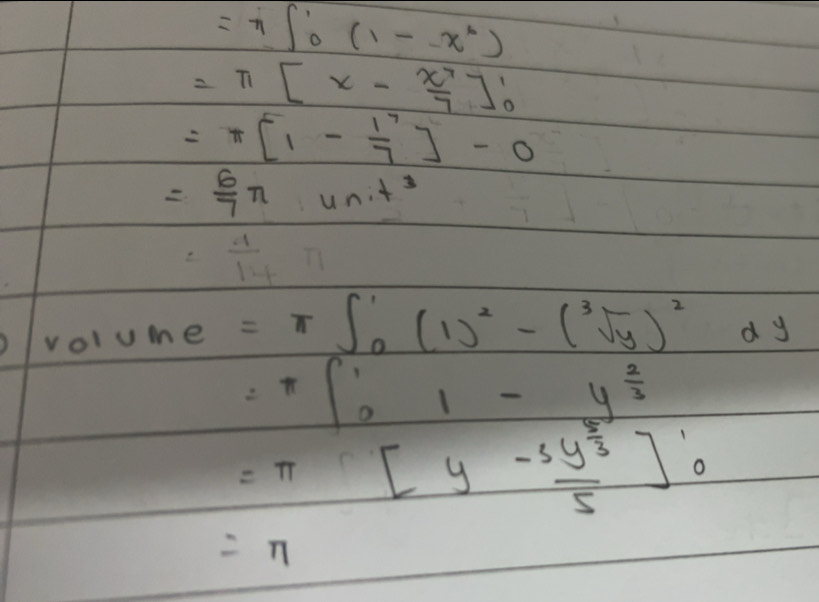 = π ∫₀¹ (1 - x⁶)
= π [ x - x⁷/7 ]₀¹
= π [ 1 - 1⁷/7 ] - 0
= 6/7 π unit³
volume = π ∫₀¹ (1)² - (³√y)² dy
= π ∫₀¹ 1 - y^(2/3)
= π [ y - 3y^(5/3)/5 ]₀¹
= π